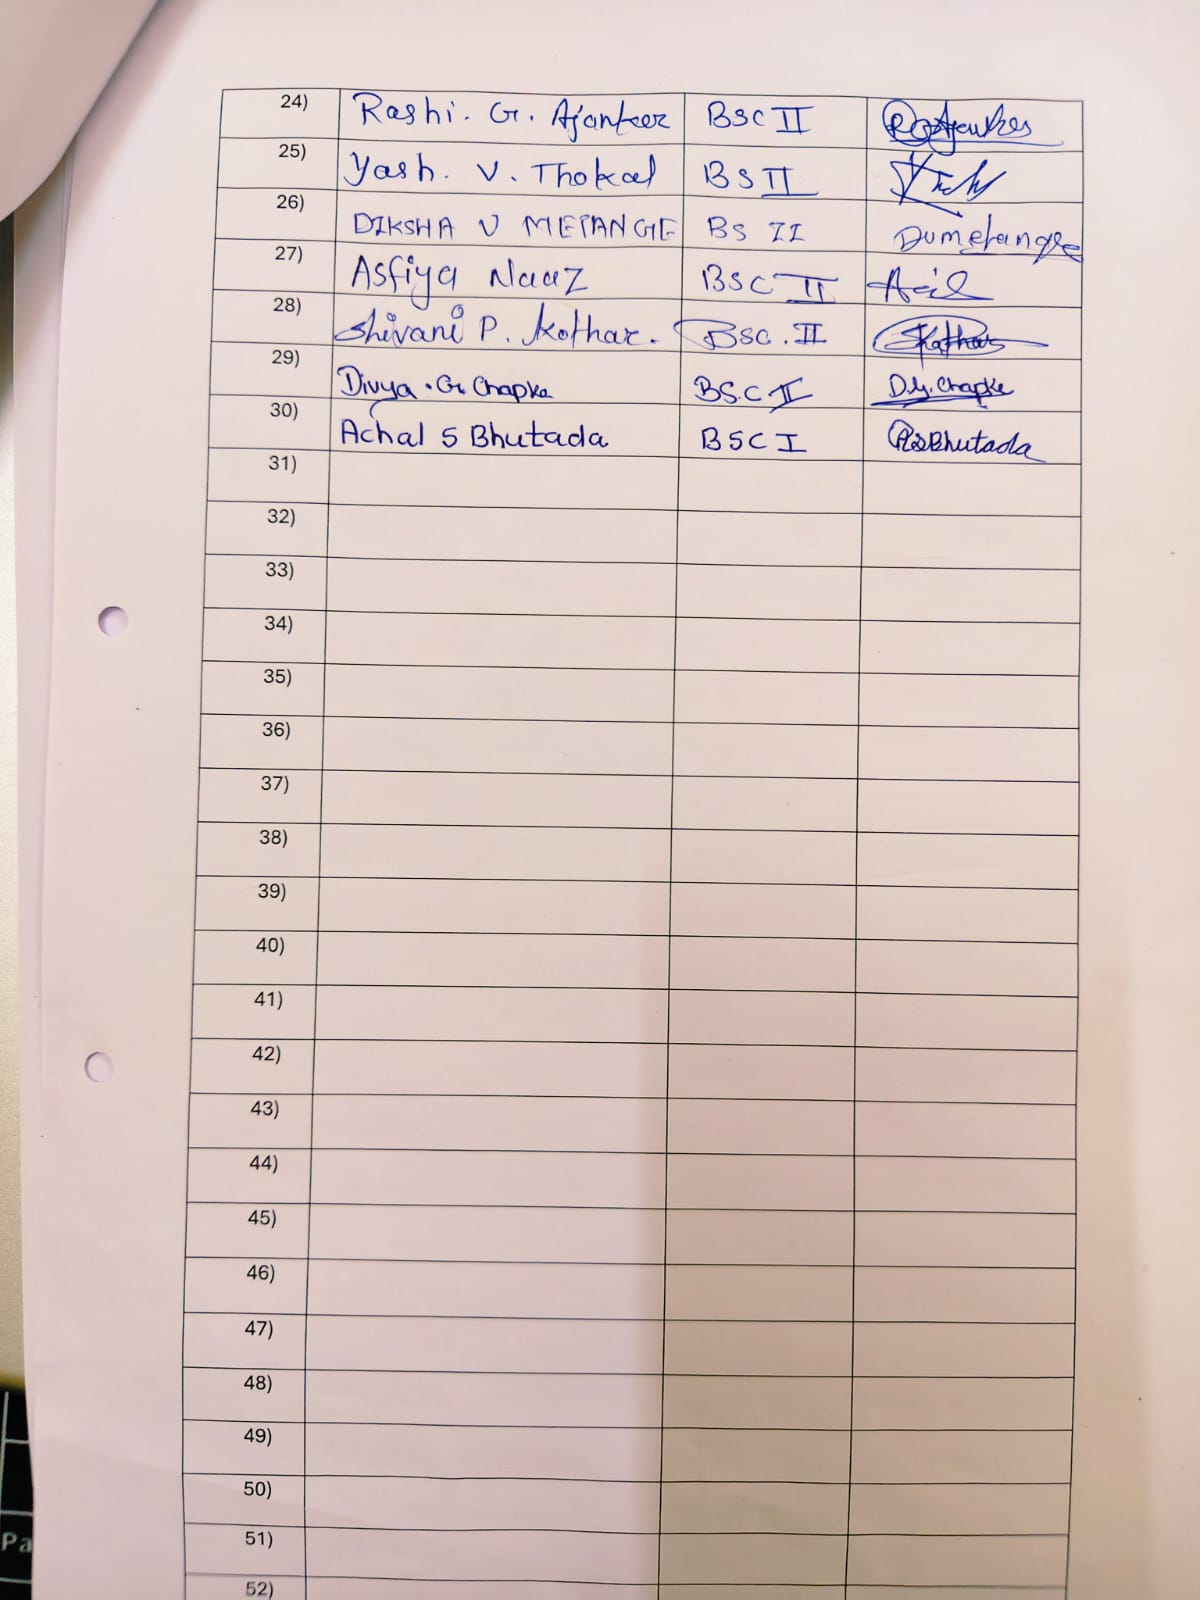 24) Rashi. G. Ajankar BSC II
25) Yash. V. Thokal BS II
26) DIKSHA V METANGE BS II Dvmetange
27) Asfiya Naaz BSC II
28) Shivani P. Kothar. BSC. II
29) Divya . G. Chapke BS.C II D.G. Chapke
30) Achal S Bhutada BSC I ASBhutada
31)
32)
33)
34)
35)
36)
37)
38)
39)
40)
41)
42)
43)
44)
45)
46)
47)
48)
49)
50)
51)
52)
Pa